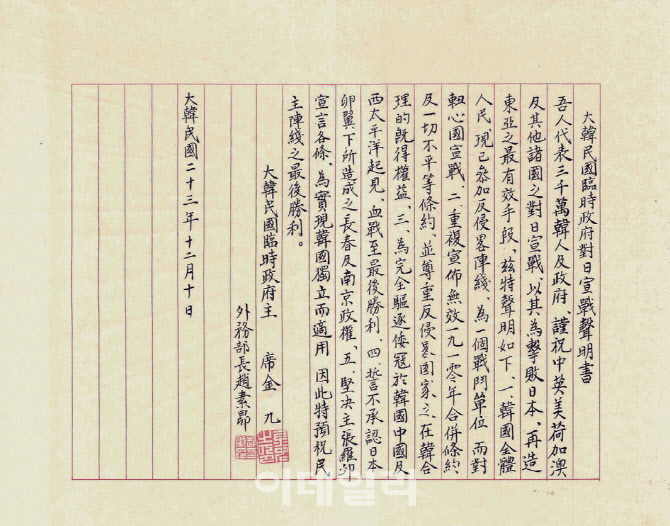 大韓民國臨時政府對日宣戰聲明書
吾人代表三千萬韓人及政府、謹祝中英美荷加澳
及其他諸國之對日宣戰、以其為擊敗日本、再造
東亞之最有效手段、玆特聲明如下、一韓國全體
人民、現已參加反侵畧陣綫、為一個戰鬥單位、而對
軔心國宣戰、二、重複宣佈無效一九一零年合併條約、
及一切不平等條約、並尊重反侵畧國家之在韓合
理的旣得權益、三、為完全驅逐倭寇於韓國中國及
西太平洋起見、血戰至最後勝利、四誓言不承認日本
卵翼下所造成之長春及南京政權、五、堅決主張羅邱
宣言各條、為實現韓國獨立而適用 因此特預祝民
主陣綫之最後勝利。
大韓民國臨時政府主 席金 九
外務部長趙素昻
大韓民國二十三年十二月十日
이데일리